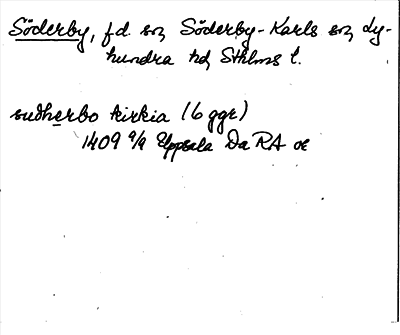 Söderby, f.d. sn, Söderby-Karls sn, Ly-
hundra hd, Sthlms l.
sudherbo kirkia (6 ggr)
1409 9/9 Uppsala Da RA or